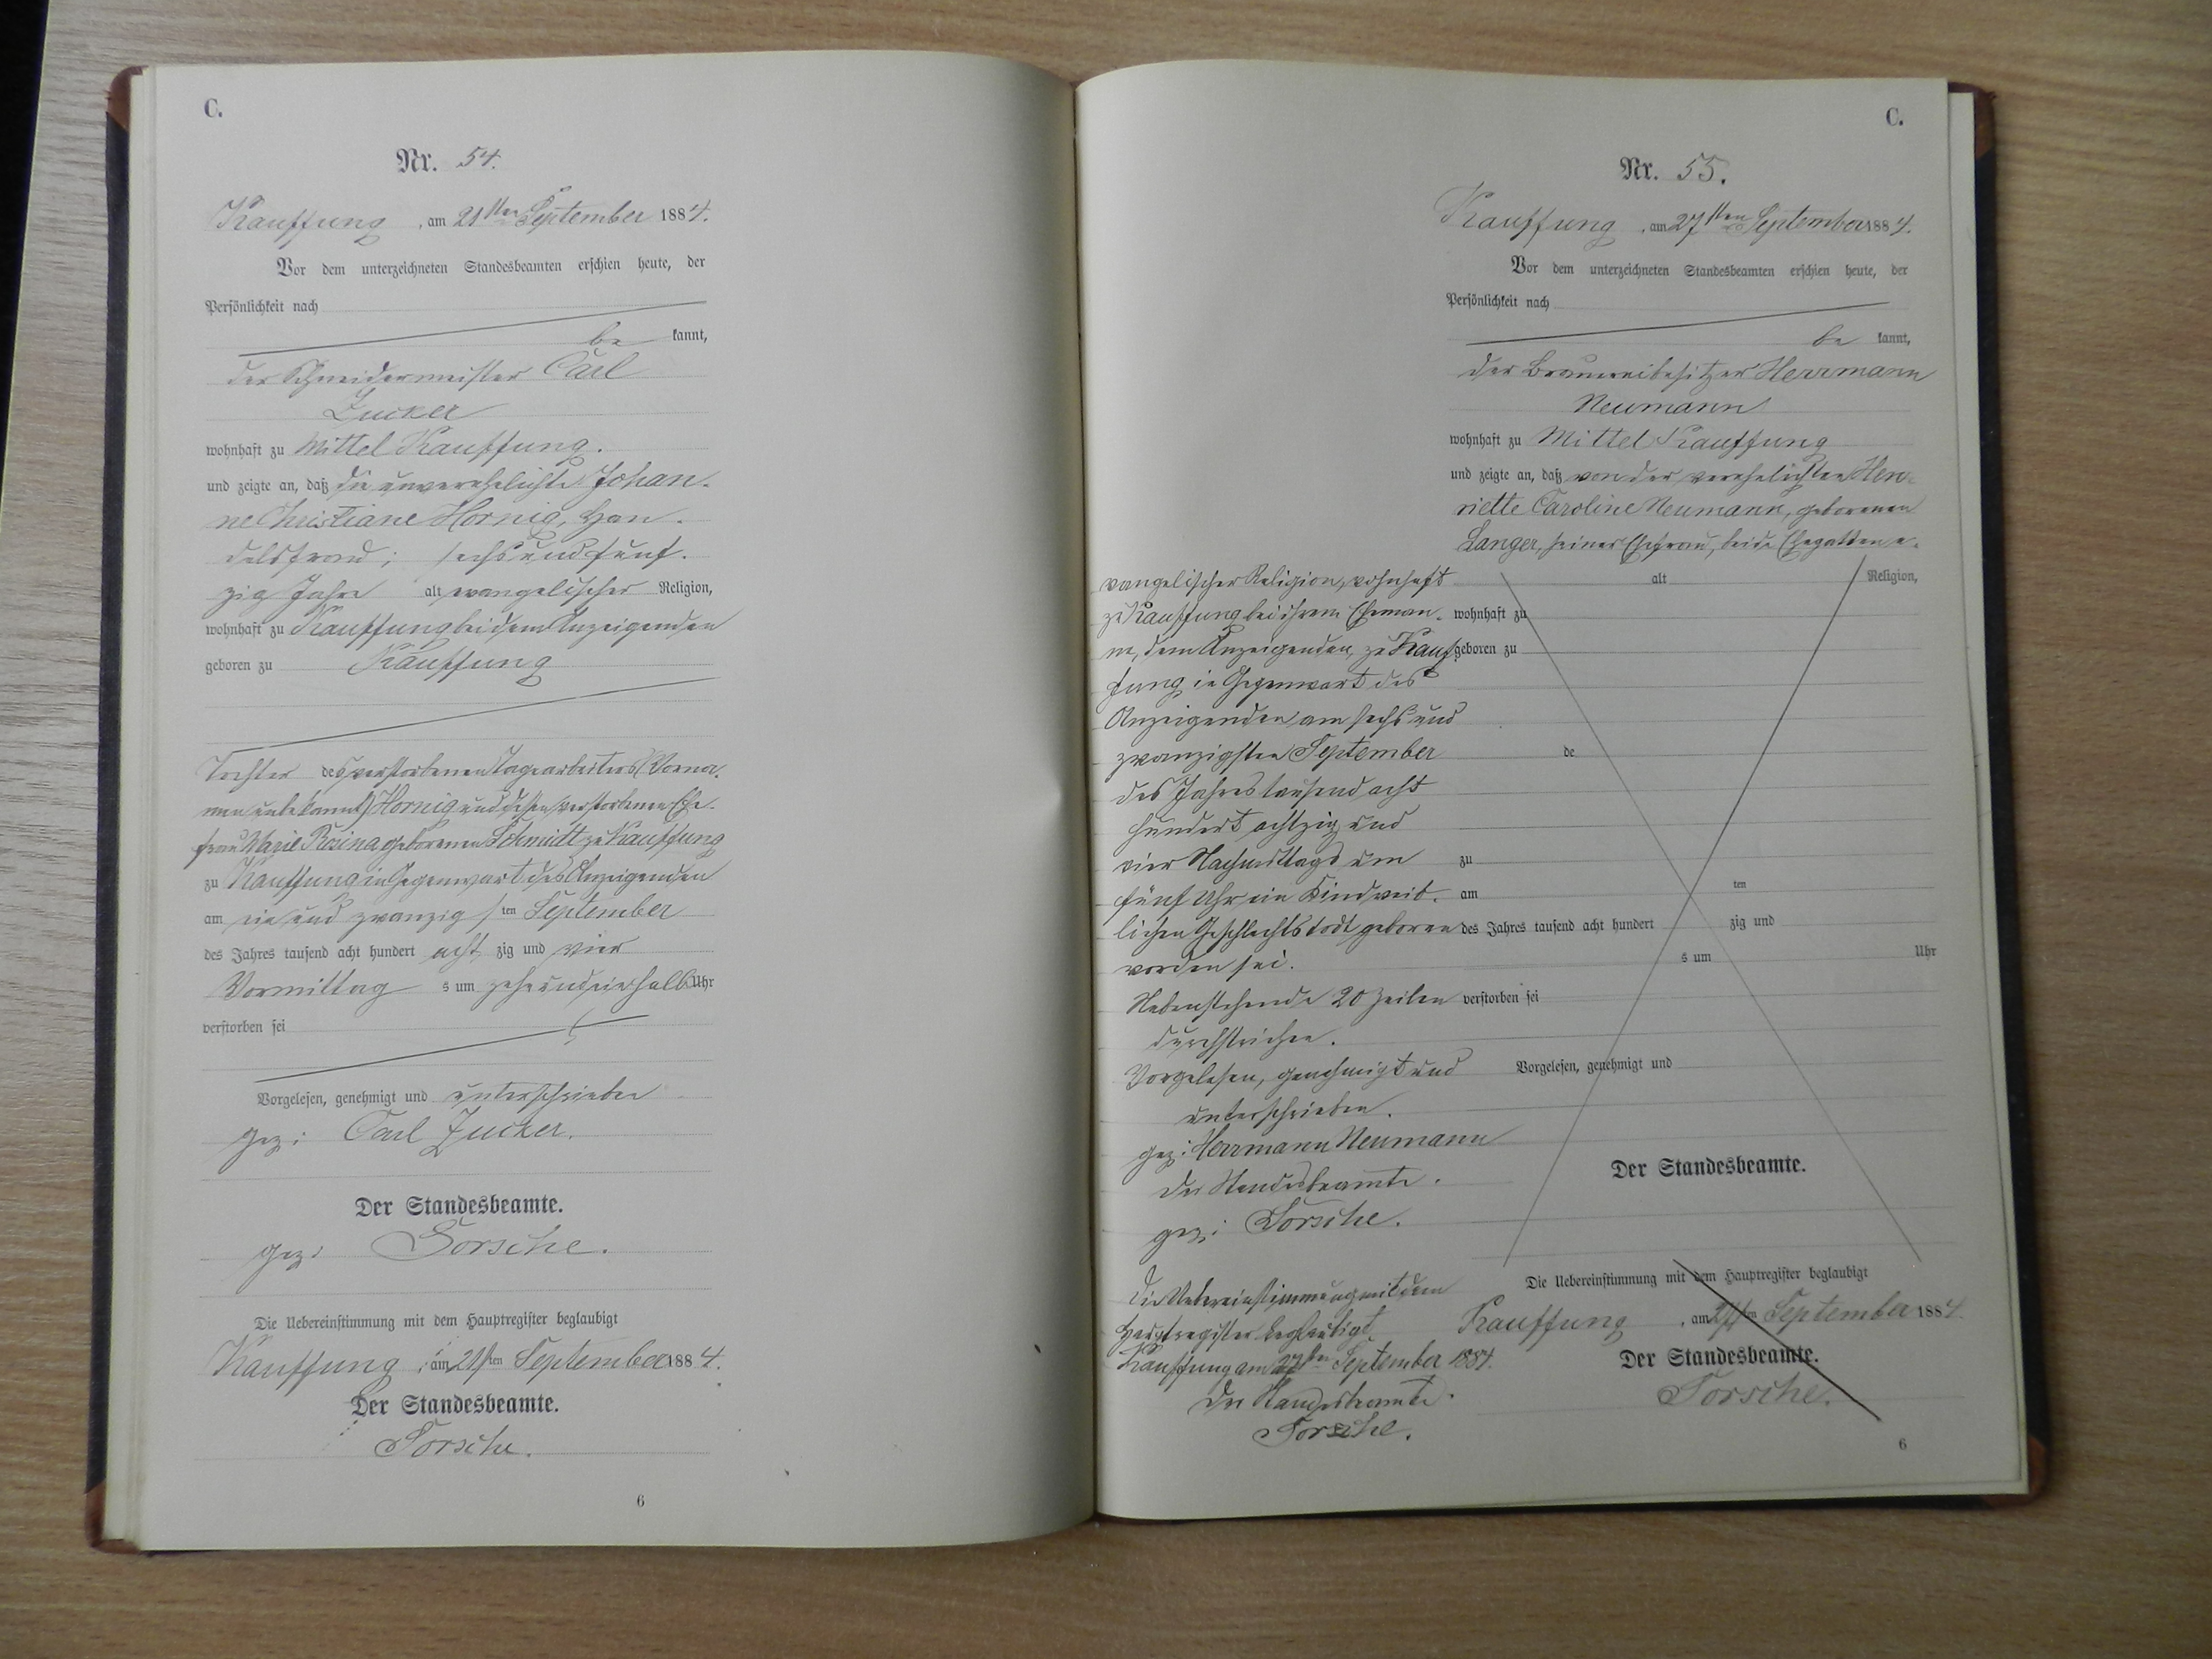 C.
Nr. 54.
Kauffung, am 21sten September 1884.
Vor dem unterzeichneten Standesbeamten erschien heute, der
Persönlichkeit nach
be kannt,
der Schneidermeister Carl
Zucker
wohnhaft zu Mittel Kauffung.
und zeigte an, daß die unverehelichte Johan-
ne Christiane Hornig, Han-
delsfrau; sechs und fünf-
zig Jahre alt evangelischer Religion,
wohnhaft zu Kauffung bei dem Anzeigenden
geboren zu Kauffung
Tochter des verstorbenen Tagearbeiters (Vorna-
men unbekannt) Hornig und dessen verstorbenen Ehe-
frau Marie Rosina geborenen Schmidt zu Kauffung
zu Kauffung in Gegenwart des Anzeigenden
am ein und zwanzigsten September
des Jahres tausend acht hundert achtzig und vier
Vormittags um zehn und einhalb Uhr
verstorben sei
Vorgelesen, genehmigt und unterschrieben
gez: Carl Zucker.
Der Standesbeamte.
gez:
Die Uebereinstimmung mit dem Hauptregister beglaubigt
Kauffung, am 21sten September 1884.
Der Standesbeamte.
6
C.
Nr. 55.
Kauffung, am 27sten September 1884.
Vor dem unterzeichneten Standesbeamten erschien heute, der
Persönlichkeit nach
be kannt,
der Brauereibesitzer Herrmann
Neumann
wohnhaft zu Mittel Kauffung
und zeigte an, daß von der verehelichten Hen-
riette Caroline Neumann, geborenen
Langer, seiner Ehefrau, beide Ehegatten e-
vangelischer Religion, wohnhaft alt Religion,
zu Kauffung bei ihrem Eheman- wohnhaft zu
ne, dem Anzeigenden, zu Kauf- geboren zu
fung in Gegenwart des
Anzeigenden am sechs und
zwanzigsten September de
des Jahres tausend acht
hundert achtzig und
vier Nachmittags um zu
fünf Uhr ein Kind weib- am ten
lichen Geschlechts todt geboren des Jahres tausend acht hundert zig und
worden sei. s um Uhr
Nebenstehende 20 Zeilen verstorben sei
durchstrichen.
Vorgelesen, genehmigt und Vorgelesen, genehmigt und
unterschrieben.
gez: Herrmann Neumann
Der Standesbeamte. Der Standesbeamte.
gez:
Die Uebereinstimmung mit dem Die Uebereinstimmung mit dem Hauptregister beglaubigt
Hauptregister beglaubigt Kauffung, am September 1884.
Kauffung am 27sten September 1884. Der Standesbeamte.
Der Standesbeamte.
6